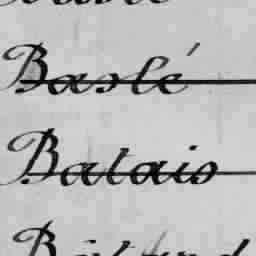 Baslé
Balais